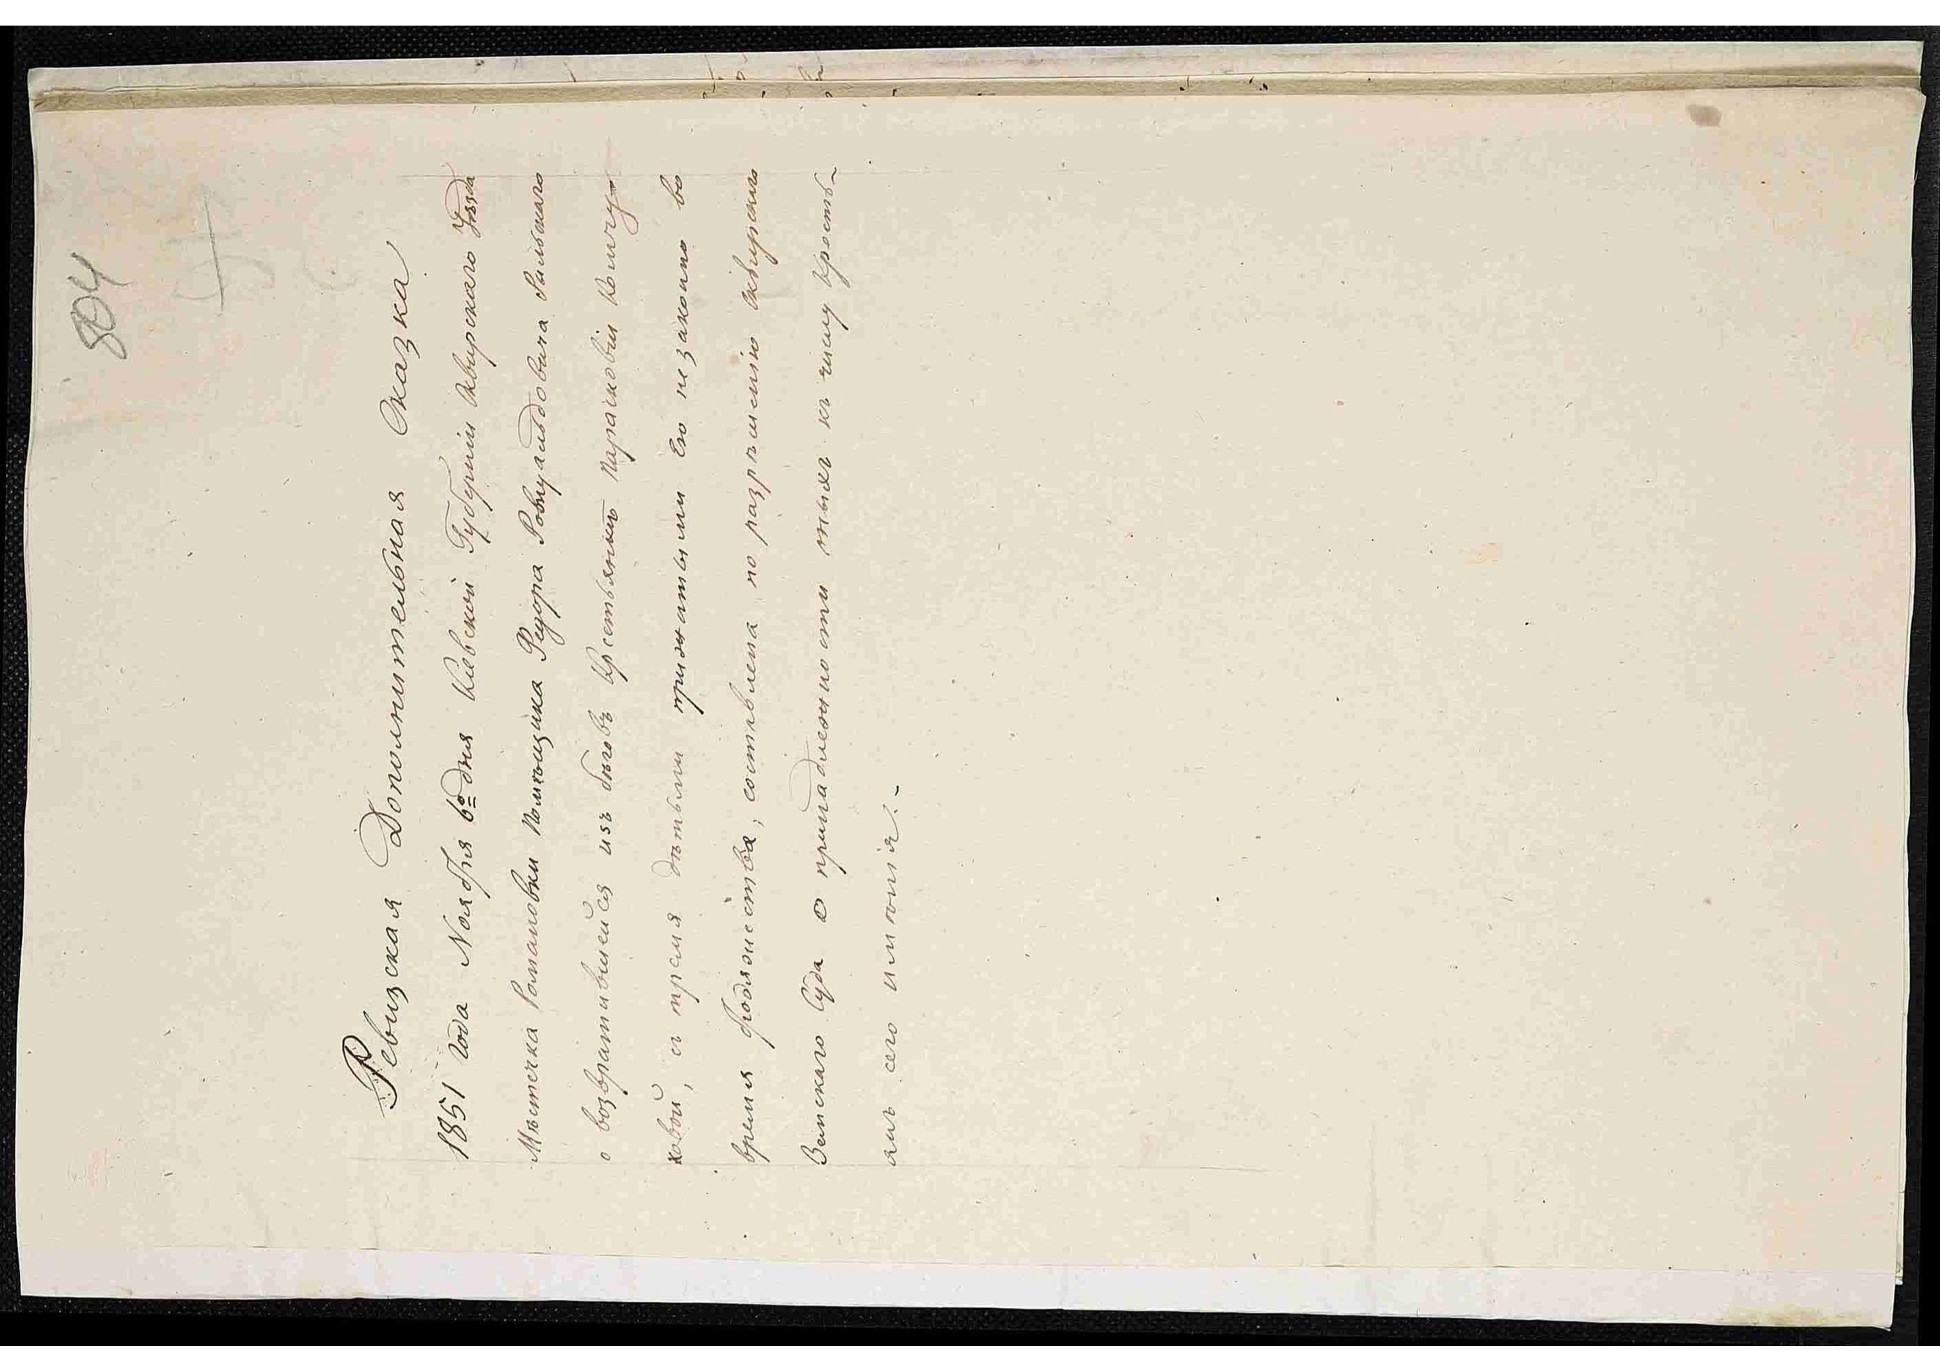 804
Ревизская Дополнительная Сказка
1851 года Ноября 6го дня Киевской Губернии Сквирского Уѣзда
Мѣстечка Романовки Помѣщика Федора Ромуальдовича Рыльскаго
о возвратившейся изъ бѣговъ Крестьянкѣ Парасковіи
ковой, съ тремя дѣтьми прижитыми Ею незаконно во
время бродяжества, составлена по разрѣшенію Сквирскаго
Земскаго Суда о принадлежности къ числу крестьъ
янъ сего имѣнія.